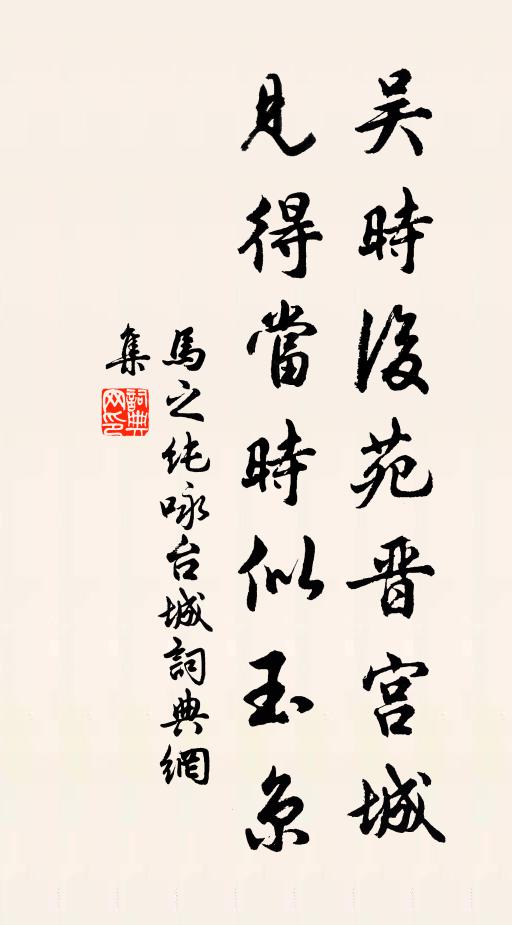 吴時後苑晋宫城
見得當時似玉京
馬之纯咏台城詞典網
集
詞典网印